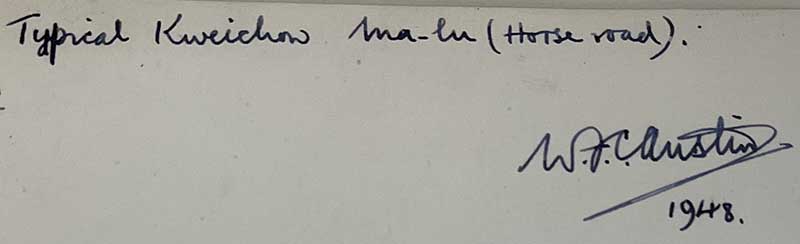 Typical Kweichow Ma-lu (Horse road).
W.F.C. Austin
1948.